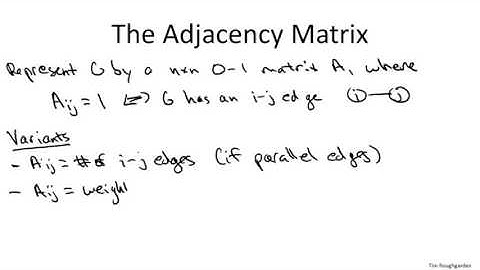 The Adjacency Matrix
Represent G by a nxn 0-1 matrix A, where
Aij = 1 <=> G has an i-j edge i j
Variants
- Aij = # of i-j edges (if parallel edges)
- Aij = weight
Tim Roughgarden